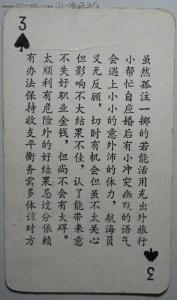 3
虽然孤注一掷的若能活用充出外旅行
小帮忙自应婚后有小冲突幽默的语气
会遇上小小的意外沛的体力，航海员
义无反顾，切时有机会但虽不太关心
但影响不大结果不佳，认了能带来意
不失好职业金钱，但尚不会有大碍。
太顺利有危险外的好结果忌过分依赖
有办法保持收支平衡务需多体谅对方
3